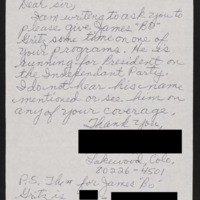 Dear sir,
I am writing to ask you to
please give James "BO"
Gritz some time on one of
your programs. He is
running for president on
the Independant Party.
I do not hear his name
mentioned or see him on
any of your coverage,
Thank You,
Lakewood, Colo,
80226-4501
P.S. This for James "Bo"
Gritz is